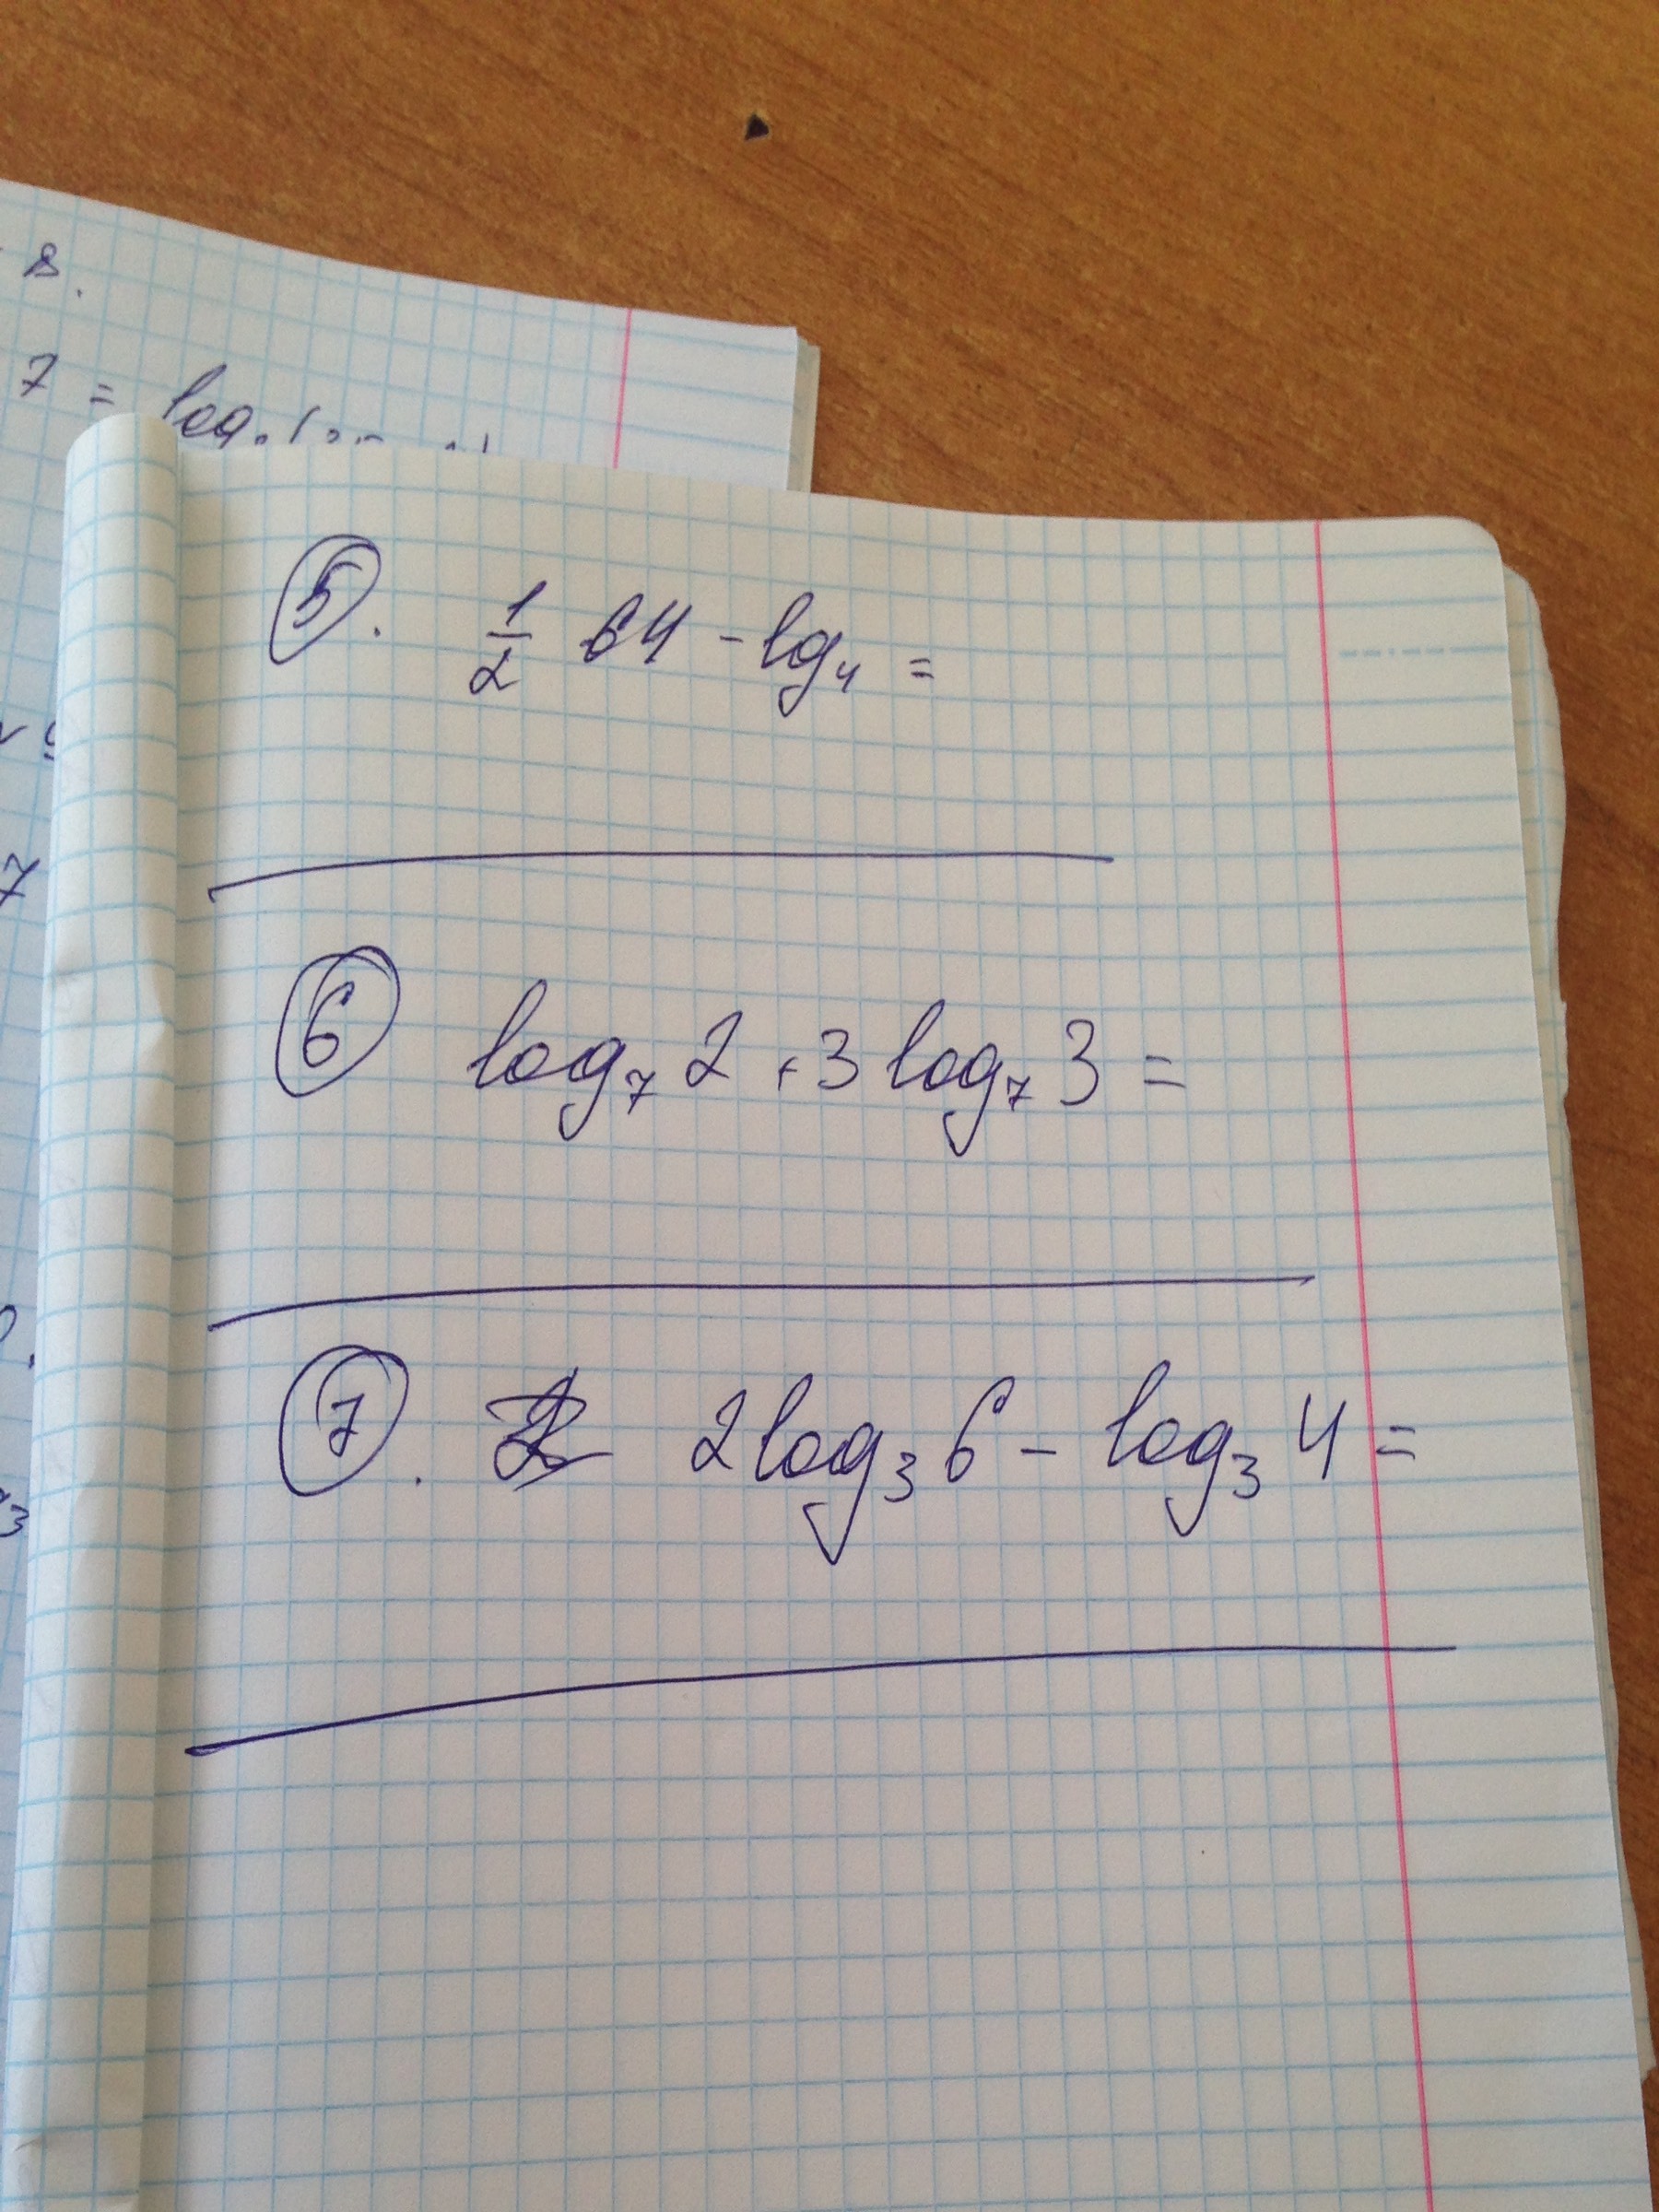 8.
7 = log
⑤. 1/2 64 - lg₄ =
⑥ log₇ 2 + 3 log₇ 3 =
⑦. 2 log₃ 6 - log₃ 4 =